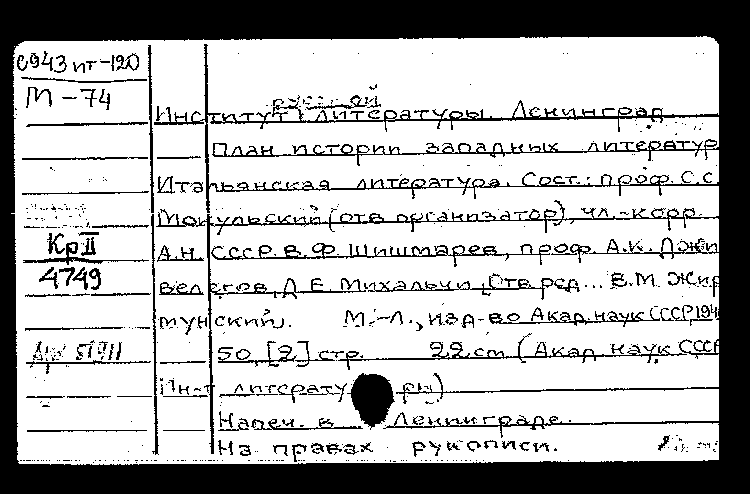 С943 ит-120
М-74
русской
Институт литературы. Ленинград.
План истории западных литератур
Итальянская литература. Сост.: проф. С.С.
Мокульский (отв. организатор), чл.-корр.
Кр II
А.Н. СССР В.Ф. Шишмарев, проф. А.К. Джи
4749
велегов, Д.Е. Михальчи, [Отв. ред... В.М. Жир
мунский]. М.-Л., изд-во Акад. наук СССР, 194
50, [2] стр. 22 cm (Акад. наук СССР
Ин-т литературы)
Напеч. в Ленинграде.
На правах рукописи.